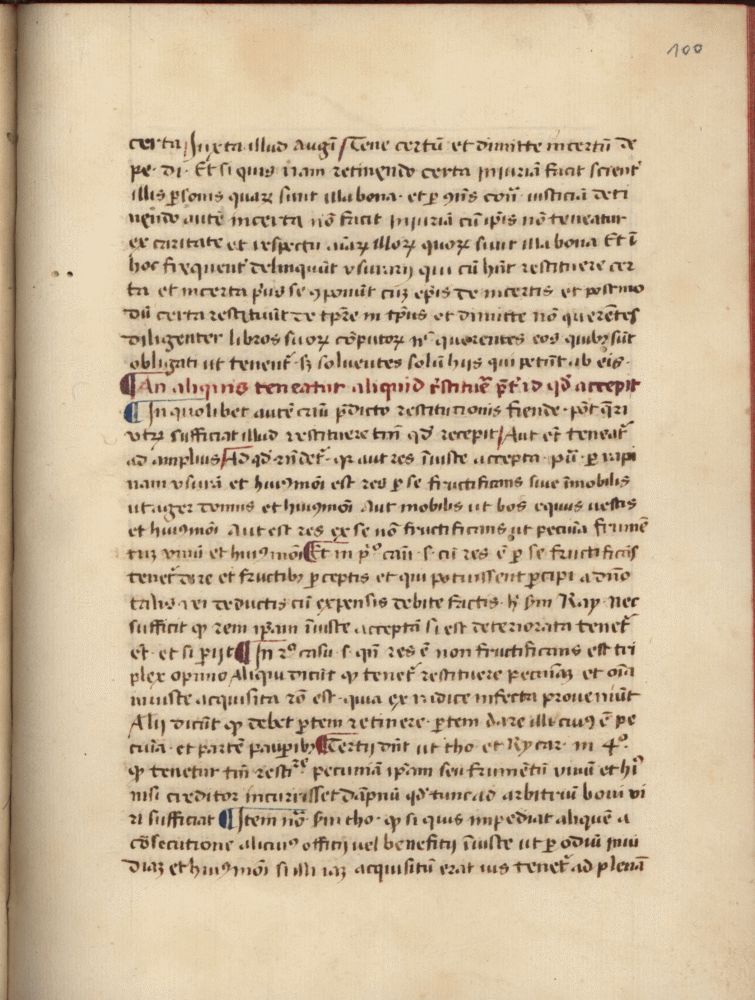 100
certa Juxta illud Augⁱ Tene certū et dimitte incertū de
pe. di. Et si quis nam retinendo certa iniuriā facit scient̄
illis ꝑsonis quaꝝ sunt illa bona. et ꝑ ꝯn̄s coīi iusticia deti
nendo autē incerta nō facit iniuriā cū ip̄is nō teneatur
ex caritate et respectu aīaꝝ illoꝝ quoꝝ sunt illa bona Et ī
hoc frequent̄ delinquūt vsurarij qui cū hn̄t restituere cer
ta et incerta pⁱus se ꝯponūt cuꝫ ep̄is de incertis et postmo
dū certa restituūt de tp̄re in tp̄us et dimitte nō querentes
diligenter libros suoꝝ cōputoꝝ nᶜ querentes eos quibꝫ sūt
obligati ut tenent̄. sꝫ soluentes solū hijs qui petūt ab eis.
¶ An aliquis teneatur aliquid r̄stitue᷑ p̄t̄ id qd̄ accepit
¶ In quolibet autē casu p̄dicto restitutionis fiende. pōt q̄ri
vtꝝ sufficiat illud restituere tm̄ qd̄ recepit Aut et̄ teneat᷑
ad amplius Ad qd̄ rn̄det᷑. qꝛ aut res īiuste accepta. pᵘ. ꝑ rapi
nam vsurā et huiꝰmōi est res ꝑ se fructificans siue īmobilis
ut ager domus et huiꝰmōi Aut mobilis ut bos equus uestis
et huiꝰmōi Aut est res ex se nō fructificans ut pecūia frumē
tuꝫ vinū et huiꝰmōi ¶ Et in pᵒ casu .s. cū res ē ꝑ se fructificās
tenet᷑ dare et fructibꝫ ꝑceptis et qui potuissent ꝑcipi a dn̄o
talis rei deductis cū expensis debite factis. hᶜ sm̄ Ray. nec
sufficit ꝙ rem ip̄am īiuste acceptā si est deteriorata tenet᷑
et̄. et si perijt ¶ In 2ᵒ casu .s. qn̄ res ē non fructificans est tri
plex opinio Aliqui dicūt ꝙ tenet᷑ restituere pecuniaꝫ et oīa
iniuste acquisita rō est. quia ex radice infecta proueniūt
Alij dicūt ꝙ debet ꝑtem retinere. ꝑtem dare illi cuiꝰ ē pe
cūia. et partē pauꝑibꝫ ¶ Tertij dn̄t ut tho et Rycar. in 4ᵒ.
ꝙ tenetur tm̄ restiʳᵉ pecuniā ip̄am seu frumentū vinū et hⁱ
nisi creditor incurrisset dāpnū qd̄ tunc ad arbitriū boni vi
ri sufficiat ¶ Item nō sm̄ tho. ꝙ si quis impediat aliquē a
cōsecutione alicuiꝰ officij uel beneficij īiuste ut ꝑ odiū inui
diaꝫ et huiꝰmōi si illi iaꝫ acquisitū erat ius tenet᷑ ad plenā